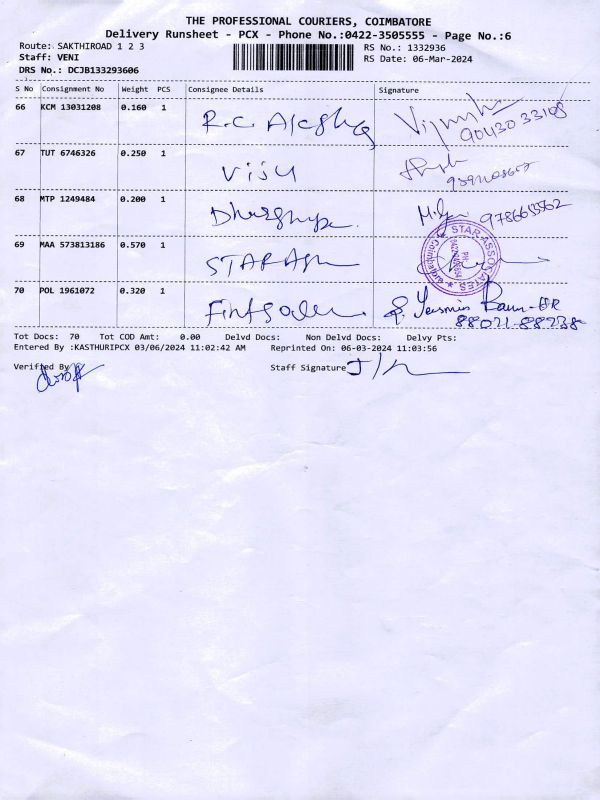 THE PROFESSIONAL COURIERS, COIMBATORE
Delivery Runsheet - PCX - Phone No.:0422-3505555 - Page No.:6
Route: SAKTHIROAD 1 2 3
RS No.: 1332936
Staff: VENI
RS Date: 06-Mar-2024
DRS No.: DCJB133293606
S No Consignment No Weight PCS Consignee Details Signature
66 KCM 13031208 0.160 1 R.C.
90430 33108
67 TUT 6746326 0.250 1 Viju
68 MTP 1249484 0.200 1
69 MAA 573813186 0.570 1 STAR
STAR ASSOCIATES
Coimbatore
70 POL 1961072 0.320 1
88071-88738
Tot Docs: 70 Tot COD Amt: 0.00 Delvd Docs: Non Delvd Docs: Delvy Pts:
Entered By :KASTHURIPCX 03/06/2024 11:02:42 AM Reprinted On: 06-03-2024 11:03:56
Verified By
Staff Signature